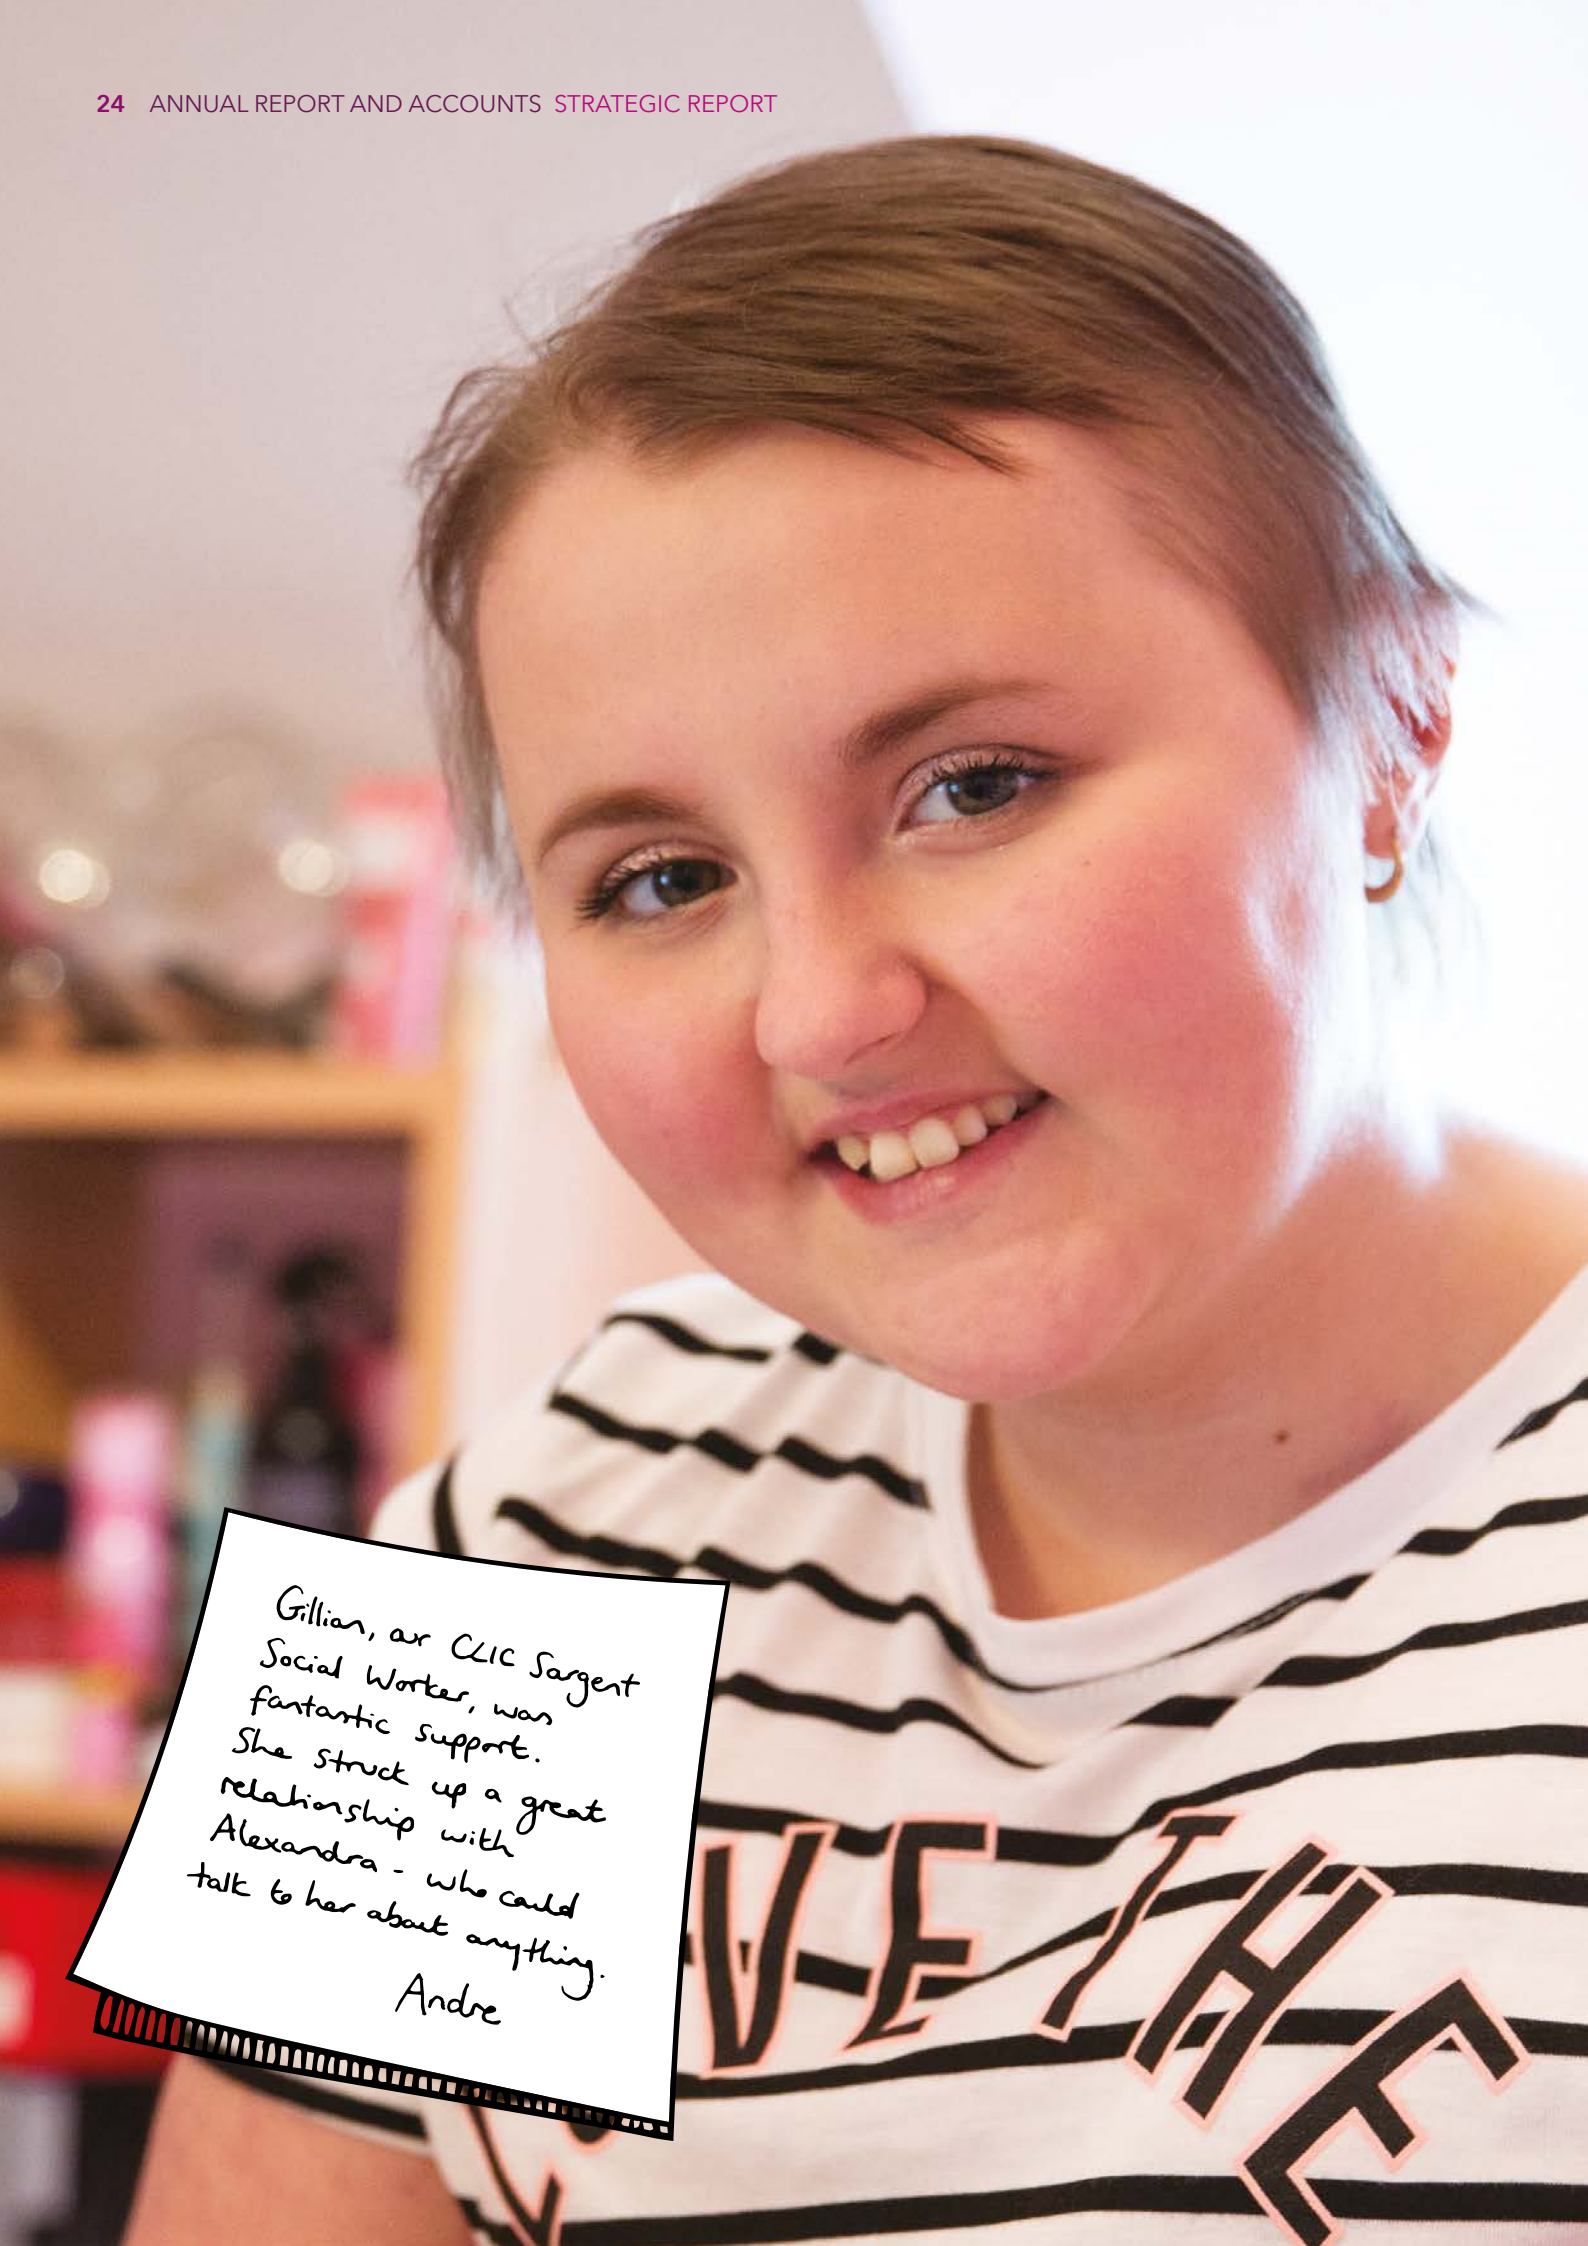 24 ANNUAL REPORT AND ACCOUNTS STRATEGIC REPORT
Gillian, our CLIC Sargent
Social Worker, was
fantastic support.
She struck up a great
relationship with
Alexandra - who could
talk to her about anything.
Andre
VE THE